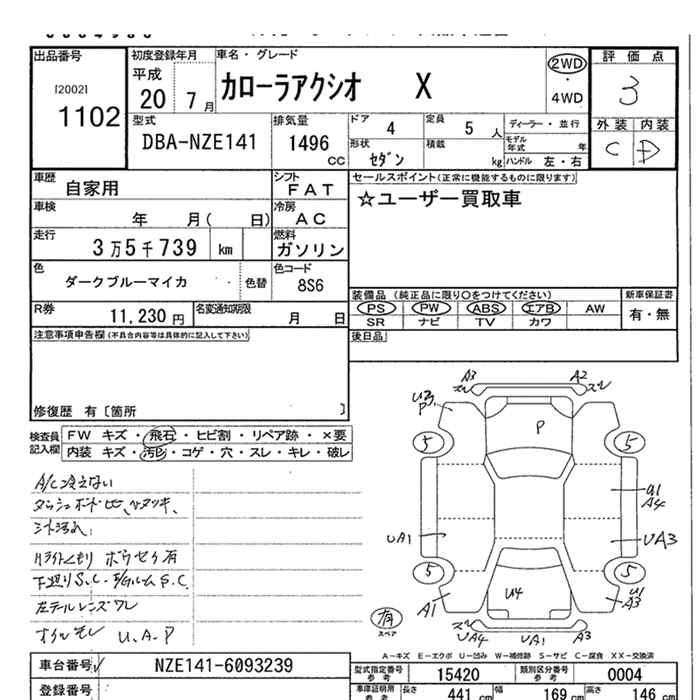 出品番号 初度登録年月 車名・グレード 評価点
[2002] 1102
平成 20 7月 カローラアクシオ X
2WD・4WD 3
型式 排気量 ドア 定員 ディーラー・並行 外装 内装
DBA-NZE141 1496 CC 4 5 人 モデル年式 年 C D
形状 セダン 積載 kg ハンドル 左・右
車歴 自家用 シフト FAT セールスポイント(正常に機能するものに限ります)
☆ユーザー買取車
車検 年 月( 日) 冷房 AC
走行 3万5千739 km 燃料 ガソリン
色 ダークブルーマイカ 色替 色コード 8S6
装備品 (純正品に限り○をつけてください) 新車保証書
PS PW ABS エアB AW 有・無
SR ナビ TV カワ
R券 11,230円 名変通知期限 月 日
注意事項申告欄(不具合内容等は具体的に記入して下さい) 後日品
修復歴 有〔箇所 〕
検査員記入欄 FW キズ・飛石・ヒビ割・リペア跡・×要
内装 キズ・汚れ・コゲ・穴・スレ・キレ・破レ
A/C冷えない
シート汚れ
下廻りS.C.
左テールレンズワレ
U.A.P
A3 A2
P
P
5 5
A4
UA1 UA3
5 5
U4
A1 A3
UA4 UA1 A3
有
スペア
A-キズ E-エクボ U-凹み W-補修跡 S-サビ C-腐食 XX-交換済
車台番号 NZE141-6093239
型式指定番号 参考 15420 類別区分番号 参考 0004
登録番号
車庫証明用 参考 長さ 441 cm 幅 169 cm 高さ 146 cm